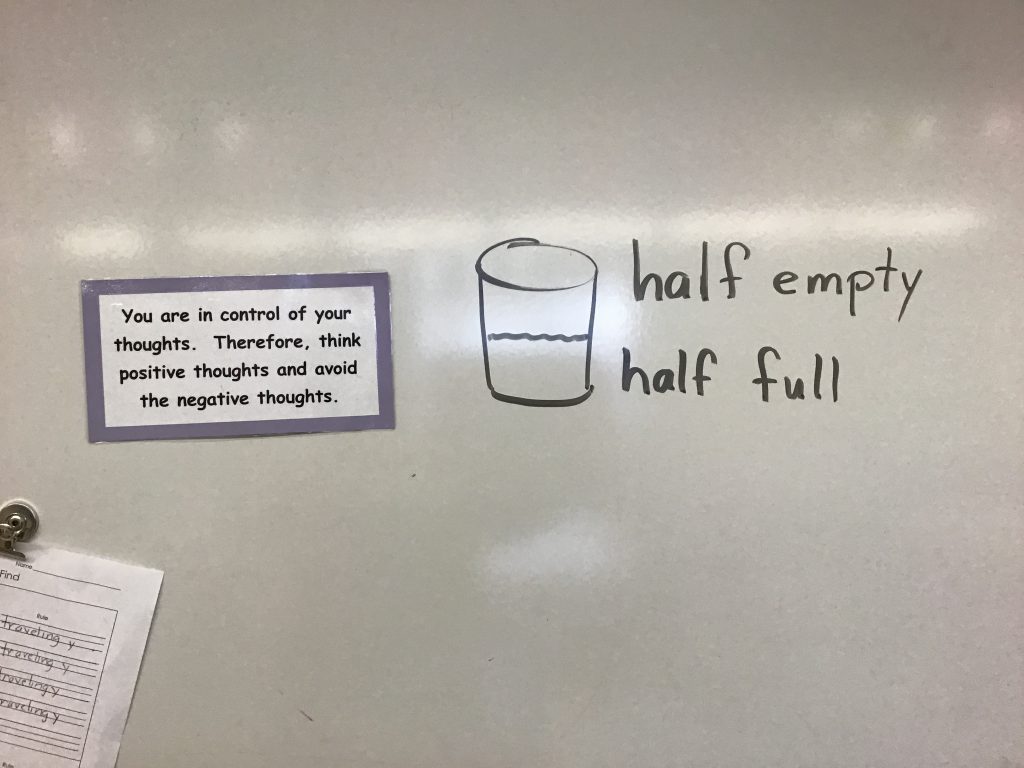 You are in control of your
thoughts. Therefore, think
positive thoughts and avoid
the negative thoughts.
half empty
half full
Name
Find
Rule
traveling y
traveling y
traveling y
traveling y
Rule